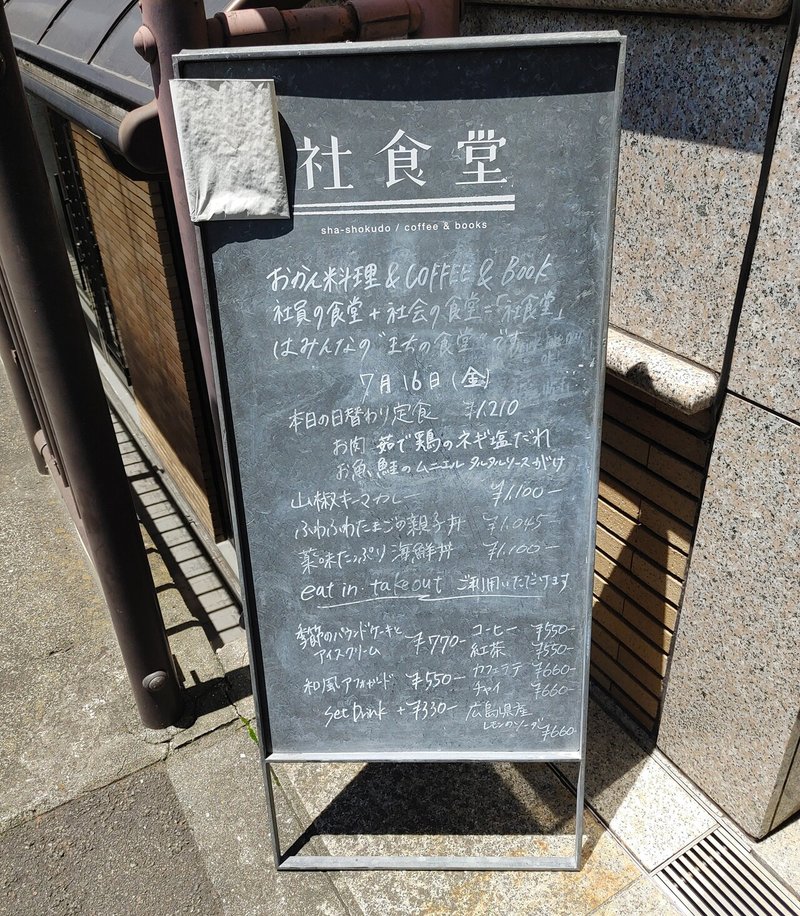 社食堂
sha-shokudo / coffee & books
おかん料理 & COFFEE & Book
社員の食堂 + 社会の食堂 =「社食堂」
はみんなの"まちの食堂"です
7月16日(金)
本日の日替わり定食 ¥1,210
お肉 茹で鶏のネギ塩だれ
お魚 鮭のムニエル タルタルソースがけ
山椒キーマカレー ¥1,100-
ふわふわたまごの親子丼 ¥1,045-
薬味たっぷり海鮮丼 ¥1,100-
eat in takeout ご利用いただけます
季節のパウンドケーキと
アイスクリーム ¥770-
和風アフォガルド ¥550-
Set Drink +¥330-
コーヒー ¥550-
紅茶 ¥550-
カフェラテ ¥660-
チャイ ¥660-
広島県産
レモンのソーダ ¥660-